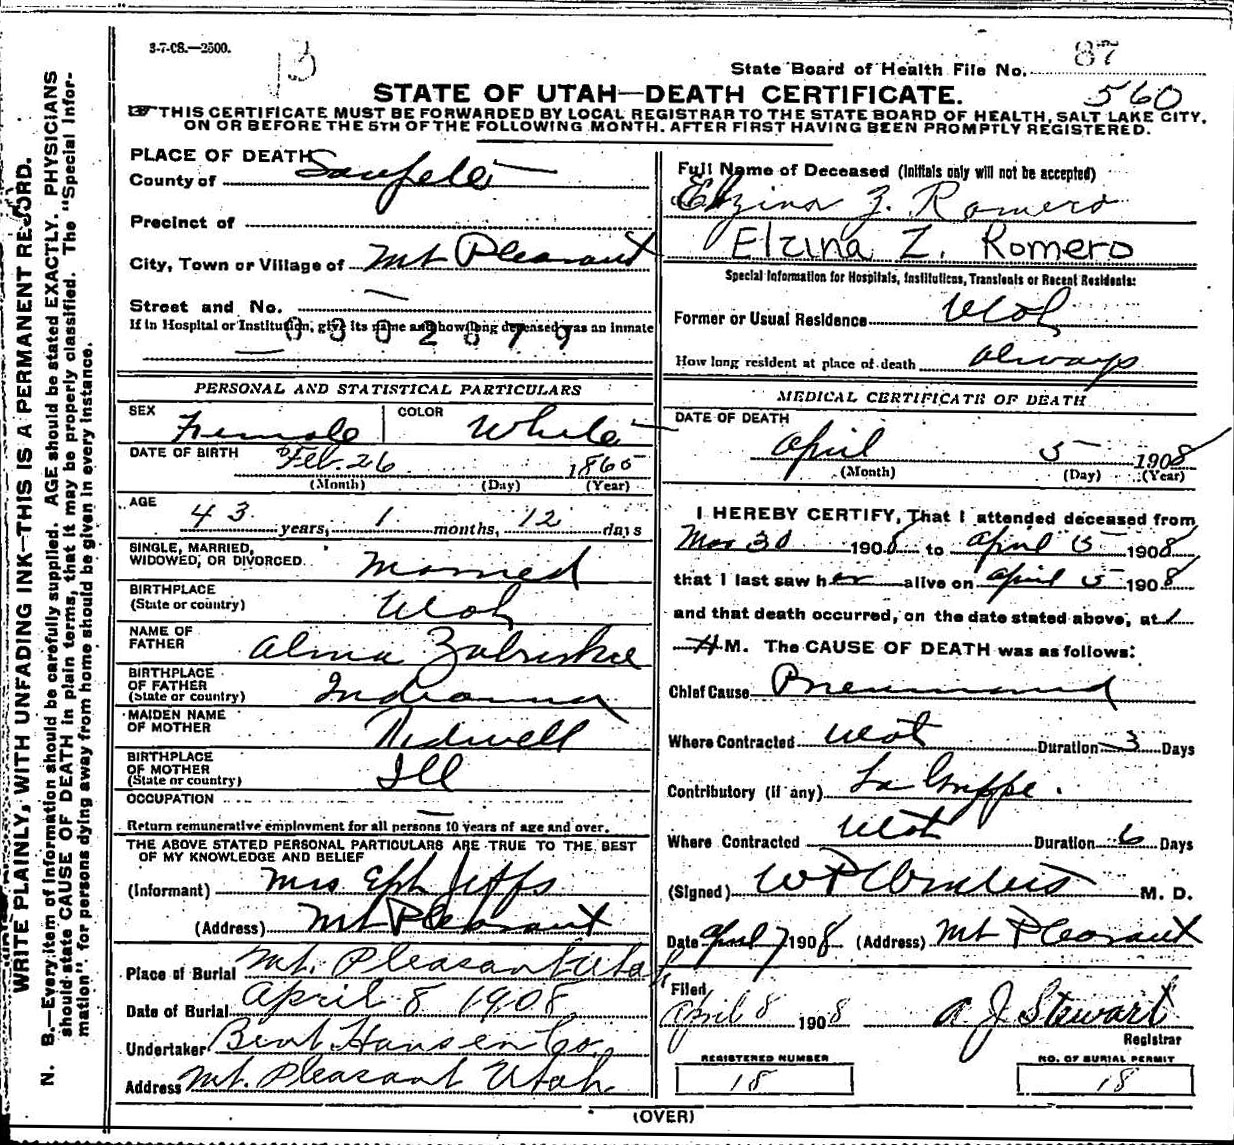 3-7-08.—2500.
13
State Board of Health File No. 87
560
STATE OF UTAH—DEATH CERTIFICATE.
THIS CERTIFICATE MUST BE FORWARDED BY LOCAL REGISTRAR TO THE STATE BOARD OF HEALTH, SALT LAKE CITY,
ON OR BEFORE THE 5TH OF THE FOLLOWING MONTH. AFTER FIRST HAVING BEEN PROMPTLY REGISTERED.
WRITE PLAINLY, WITH UNFADING INK—THIS IS A PERMANENT RECORD.
N. B.—Every item of information should be carefully supplied. AGE should be stated EXACTLY. PHYSICIANS
should state CAUSE OF DEATH in plain terms, that it may be properly classified. The "Special Infor-
mation" for persons dying away from home should be given in every instance.
PLACE OF DEATH
County of Sanpete
Precinct of
City, Town or Village of Mt Pleasant
Street and No. —
If in Hospital or Institution, give its name and how long deceased was an inmate
0302879
PERSONAL AND STATISTICAL PARTICULARS
SEX Female COLOR White
DATE OF BIRTH Feb. 26 1865
(Month) (Day) (Year)
AGE 43 years, 1 months, 12 days
SINGLE, MARRIED,
WIDOWED, OR DIVORCED Married
BIRTHPLACE
(State or country) Utah
NAME OF
FATHER Alma Zabriskie
BIRTHPLACE
OF FATHER
(State or country) Indianna
MAIDEN NAME
OF MOTHER Nidwell
BIRTHPLACE
OF MOTHER
(State or country) Ill
OCCUPATION —
Return remunerative employment for all persons 10 years of age and over.
THE ABOVE STATED PERSONAL PARTICULARS ARE TRUE TO THE BEST
OF MY KNOWLEDGE AND BELIEF
(Informant) Mrs Eph Jeffs
(Address) Mt Pleasant
Place of Burial Mt. Pleasant Utah
Date of Burial April 8 1908
Undertaker Bent Hansen Co.
Address Mt. Pleasant Utah
Full Name of Deceased (Initials only will not be accepted)
Elzina Z. Romero
Elzina Z. Romero
Special Information for Hospitals, Institutions, Transients or Recent Residents:
Former or Usual Residence Utah
How long resident at place of death always
MEDICAL CERTIFICATE OF DEATH
DATE OF DEATH
April 5 1908
(Month) (Day) (Year)
I HEREBY CERTIFY, That I attended deceased from
Mar 30 1908 to April 5 1908
that I last saw her alive on April 5 1908
and that death occurred, on the date stated above, at 1
M. The CAUSE OF DEATH was as follows:
Chief Cause Pneumonia
Where Contracted Utah Duration 3 Days
Contributory (if any) La Grippe.
Where Contracted Utah Duration 6 Days
(Signed) M. D.
Date April 7 1908 (Address) Mt Pleasant
Filed
April 8 1908 A J Stewart
Registrar
REGISTERED NUMBER NO. OF BURIAL PERMIT
18 18
(OVER)